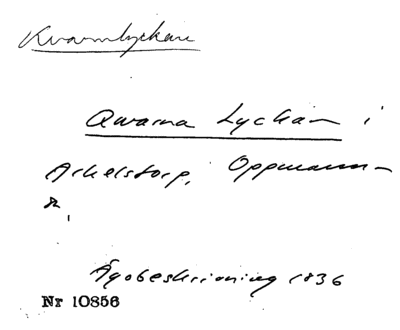 Kvarnlyckan
Qwarna Lyckan i
Arkelstorp, Oppmanna-
Ägobeskrivning 1836
Nr 10856